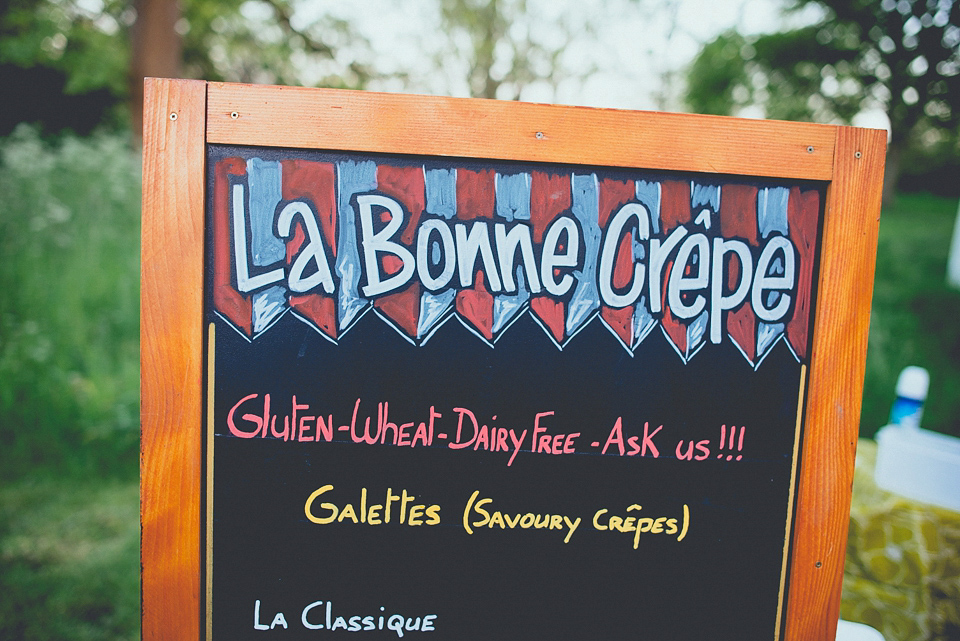 La Bonne Crêpe
Gluten-Wheat-Dairy Free - Ask us!!!
Galettes (Savoury Crêpes)
La Classique